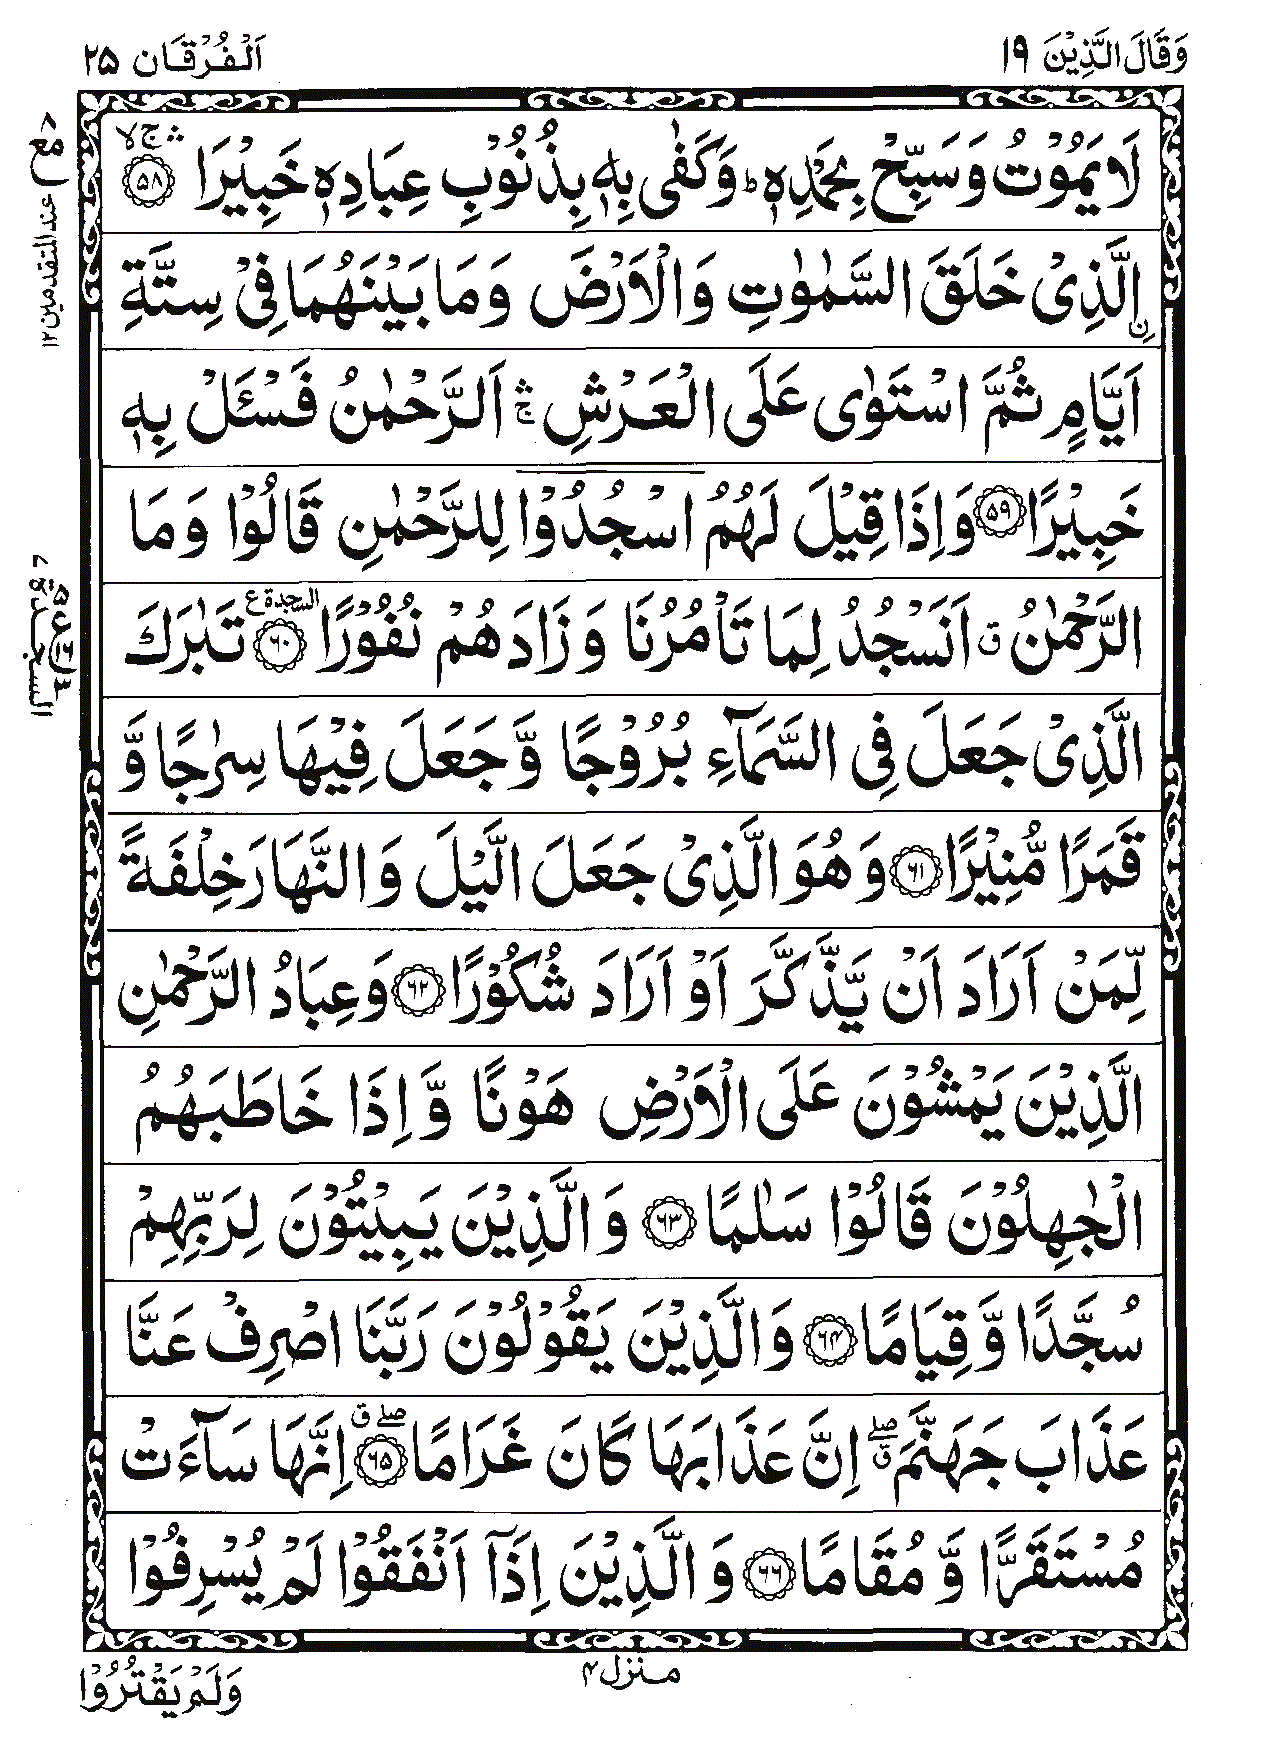 وَقَالَ الَّذِيْنَ ١٩
اَلْفُرْقَان ٢٥
لَا يَمُوْتُ وَسَبِّحْ بِحَمْدِهٖ ؕ وَكَفٰى بِهٖ بِذُنُوْبِ عِبَادِهٖ خَبِيْرَا ۛۚ ۙ ﴿۵۸﴾
اِ۟لَّذِىْ خَلَقَ السَّمٰوٰتِ وَالْاَرْضَ وَمَا بَيْنَهُمَا فِىْ سِتَّةِ
اَيَّامٍ ثُمَّ اسْتَوٰى عَلَى الْعَرْشِ ۛۚ اَلرَّحْمٰنُ فَسْـَٔلْ بِهٖ
خَبِيْرًا ﴿۵۹﴾ وَاِذَا قِيْلَ لَهُمُ اسْجُدُوْا لِلرَّحْمٰنِ قَالُوْا وَمَا
الرَّحْمٰنُ ق اَنَسْجُدُ لِمَا تَاْمُرُنَا وَزَادَهُمْ نُفُوْرًا السجدة ع ﴿۶۰﴾ تَبٰرَكَ
الَّذِىْ جَعَلَ فِى السَّمَآءِ بُرُوْجًا وَّجَعَلَ فِيْهَا سِرٰجًا وَّ
قَمَرًا مُّنِيْرًا ﴿۶۱﴾ وَهُوَ الَّذِىْ جَعَلَ الَّيْلَ وَالنَّهَارَ خِلْفَةً
لِّمَنْ اَرَادَ اَنْ يَّذَّكَّرَ اَوْ اَرَادَ شُكُوْرًا ﴿۶۲﴾ وَعِبَادُ الرَّحْمٰنِ
الَّذِيْنَ يَمْشُوْنَ عَلَى الْاَرْضِ هَوْنًا وَّاِذَا خَاطَبَهُمُ
الْجٰهِلُوْنَ قَالُوْا سَلٰمًا ﴿۶۳﴾ وَالَّذِيْنَ يَبِيْتُوْنَ لِرَبِّهِمْ
سُجَّدًا وَّقِيَامًا ﴿۶۴﴾ وَالَّذِيْنَ يَقُوْلُوْنَ رَبَّنَا اصْرِفْ عَنَّا
عَذَابَ جَهَنَّمَ ۖ ق اِنَّ عَذَابَهَا كَانَ غَرَامًا ۖ ق ﴿۶۵﴾ اِنَّهَا سَآءَتْ
مُسْتَقَرًّا وَّمُقَامًا ﴿۶۶﴾ وَالَّذِيْنَ اِذَآ اَنْفَقُوْا لَمْ يُسْرِفُوْا
منزل۴
وَلَمْ يَقْتُرُوْا
مع عند المتقدمين ١٢
السجدة